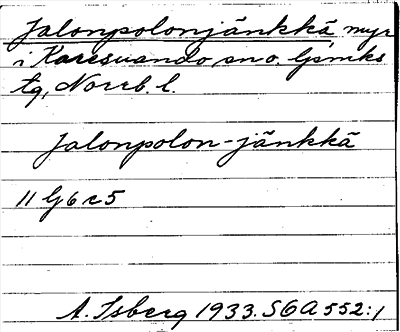 Jalonpolonjänkkä, myr
i Karesuando sn o. Ljsmks
tg, Norrb. l.
Jalonpolon-jänkkä
11 G 6 c 5
A. Isberg 1933. SGA 552:1